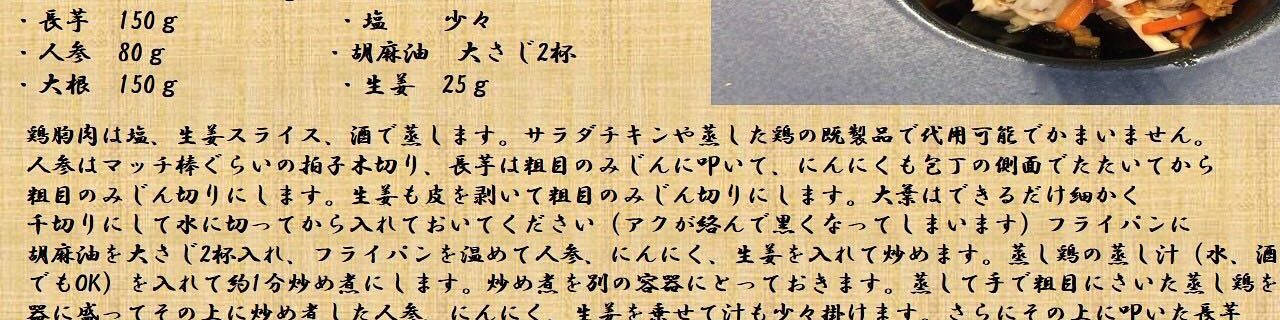 ・長芋 150g ・塩 少々
・人参 80g ・胡麻油 大さじ2杯
・大根 150g ・生姜 25g
鶏胸肉は塩、生姜スライス、酒で蒸します。サラダチキンや蒸した鶏の既製品で代用可能でかまいません。
人参はマッチ棒ぐらいの拍子木切り、長芋は粗目のみじんに叩いて、にんにくも包丁の側面でたたいてから
粗目のみじん切りにします。生姜も皮を剥いて粗目のみじん切りにします。大葉はできるだけ細かく
千切りにして水に切ってから入れておいてください（アクが絡んで黒くなってしまいます）フライパンに
胡麻油を大さじ2杯入れ、フライパンを温めて人参、にんにく、生姜を入れて炒めます。蒸し鶏の蒸し汁（水、酒
でもOK）を入れて約1分炒め煮にします。炒め煮を別の容器にとっておきます。蒸して手で粗目にさいた蒸し鶏を
器に盛ってその上に炒め煮した人参、にんにく、生姜を乗せて汁も少々掛けます。さらにその上に叩いた長芋